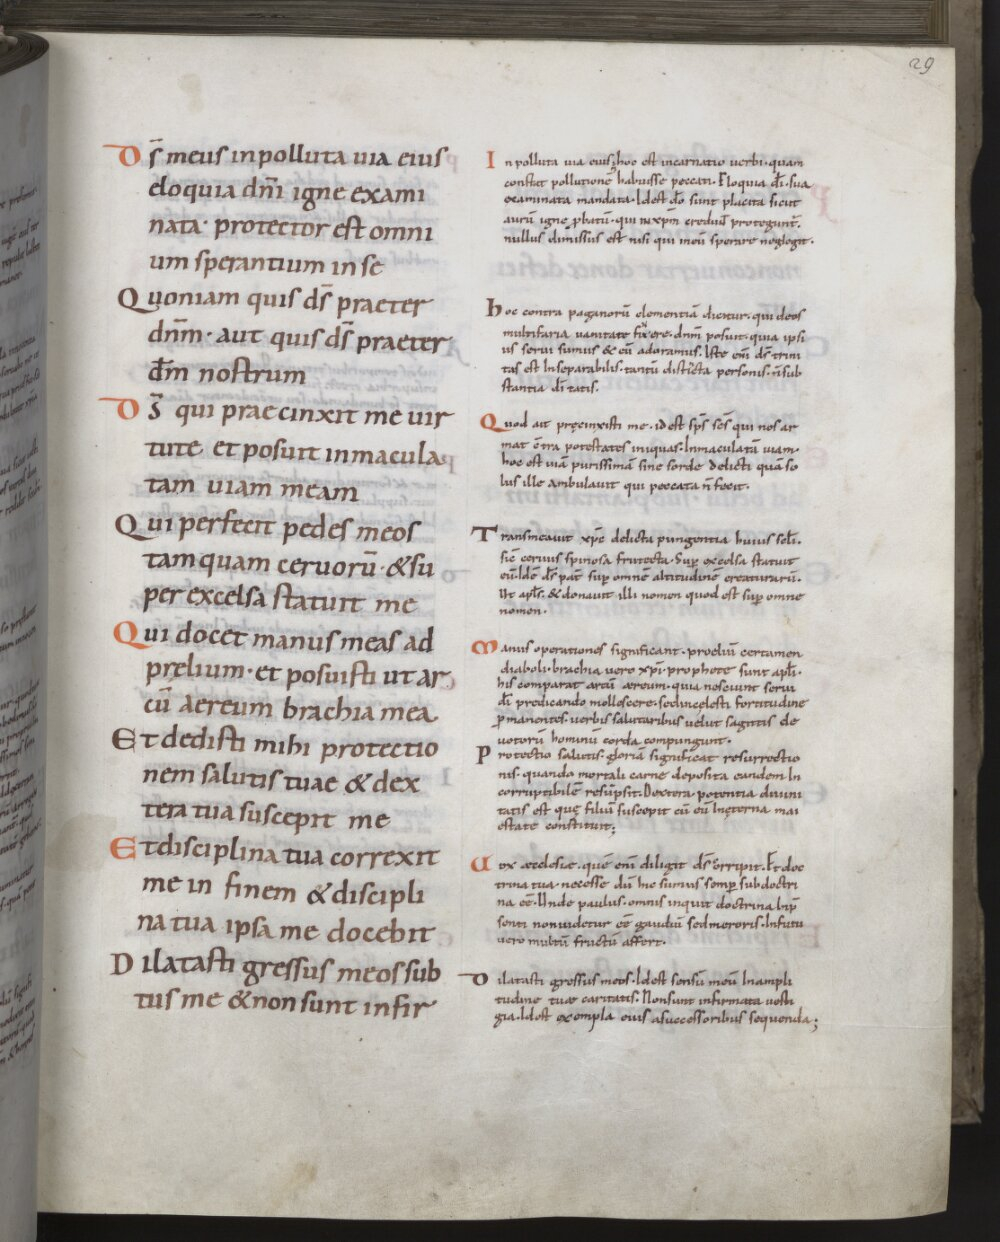 29
Ds̄ meus inpolluta uia eius
eloquia dn̄i igne exami
nata· protector est omni
um sperantium in se
Quoniam quis ds̄ praeter
dn̄m· aut quis ds̄ praeter
dm̄ nostrum
Ds̄ qui praecinxit me uir
tute et posuit inmacula
tam uiam meam
Qui perfecit pedes meos
tamquam ceruorū· &su
per excelsa statuit me
Qui docet manus meas ad
prelium· et posuisti ut ar
cū aereum brachia mea
Et dedisti mihi protectio
nem salutis tuae & dex
tera tua suscepit me
Et disciplina tua correxit
me in finem & discipli
na tua ipsa me docebit
Dilatasti gressus meos sub
tus me & non sunt infir
In polluta uia eius; hoc est incarnatio uerbi· quam
constat pollutionē habuisse peccati. Eloquia dī· sua
examinata mandata· Idest dō sunt placita sicut
aurū igne ꝓbatū· qui in xpm̄ credunt protegunt·
nullus dimissus est nisi qui in eū sperare neglegit·
Hoc contra paganorū dementiā dicitur· qui deos
multifaria uanitate fixere· dn̄m posuit· quia ipsi
us serui sumus & eū adoramus. Iste enī ds̄ trini
tas est Inseparabilis· tantū distincta personis· n̄ sub
stantia di tatis.
Quod ait precinxisti me· id est sps̄ scs̄ qui nos ar
mat cōtra potestates iniquas· Inmaculatā uiam·
hoc est uiā purissimā sine sorde delicti quā so
lus ille ambulauit qui peccata n̄ fecit·
Transmeauit xpc̄ delicta pungentia huius scl̄i·
sic̄ ceruus spinosa frutecta· Sup̱ excelsa statuit
eū· Idē ds̄ pat̄ sup̱ omnē altitudinē creaturarū·
Ut apl̄s· & donauit illi nomen quod est sup̱ omne
nomen·
Manus operationes significant· proeliū certamen
diaboli· brachia uero xpī· prophete sunt apl̄i·
his comparat arcū aereum· quia nesciunt serui
dī predicando mollescere· sed in celesti fortitudine
ꝑmanentes· uerbis salutaribus uelut sagittis de
uotorū hominū corda compungunt·
Protectio salutis· gloriā significat resurrectio
nis· quando mortali carne deposita eandem In
corruptibilē resūpsit· Dextera· potentia diuini
tatis est quę filiū suscepit cū eū In ęterna mai
estate constituit;
Uox aecclesiae· quē enī diligit ds̄ erripit· Et doc
trina tua· necesse dū hic sumus semp̱ sub doctri
na eē· Unde paulus· omnis inquit doctrina In p̄
senti non uidetur eē gaudiū sed meroris· In futu
uero multū fructū affert·
Dilatasti gressus meos· Idest sensū meū In ampli
tudine tuae caritatis· Non sunt infirmata uesti
gia· Idest exempla eius a successoribus sequenda;